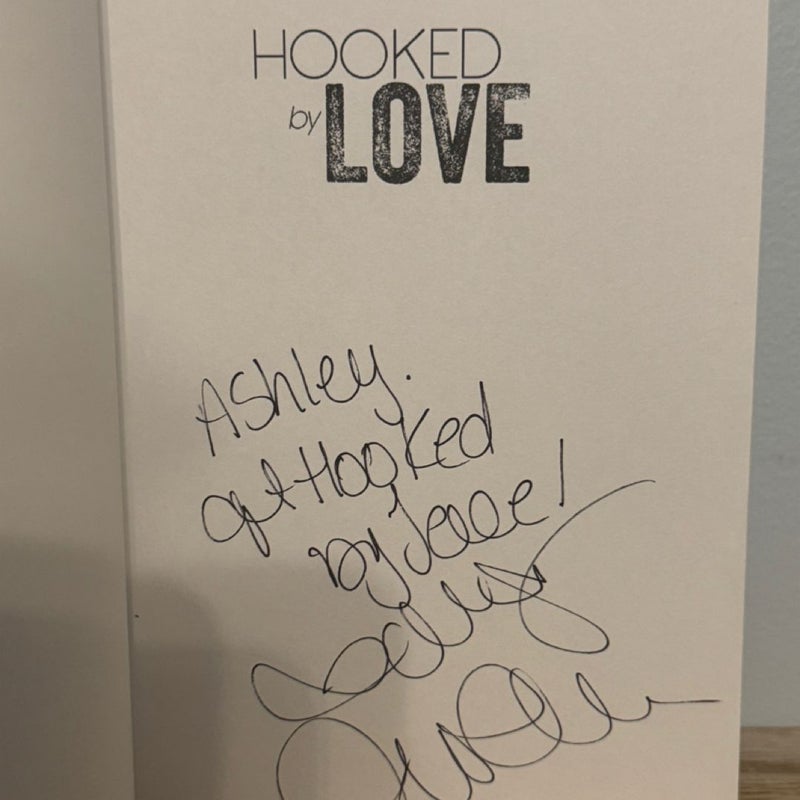 HOOKED
by LOVE
Ashley.
get Hooked
by Jesse!